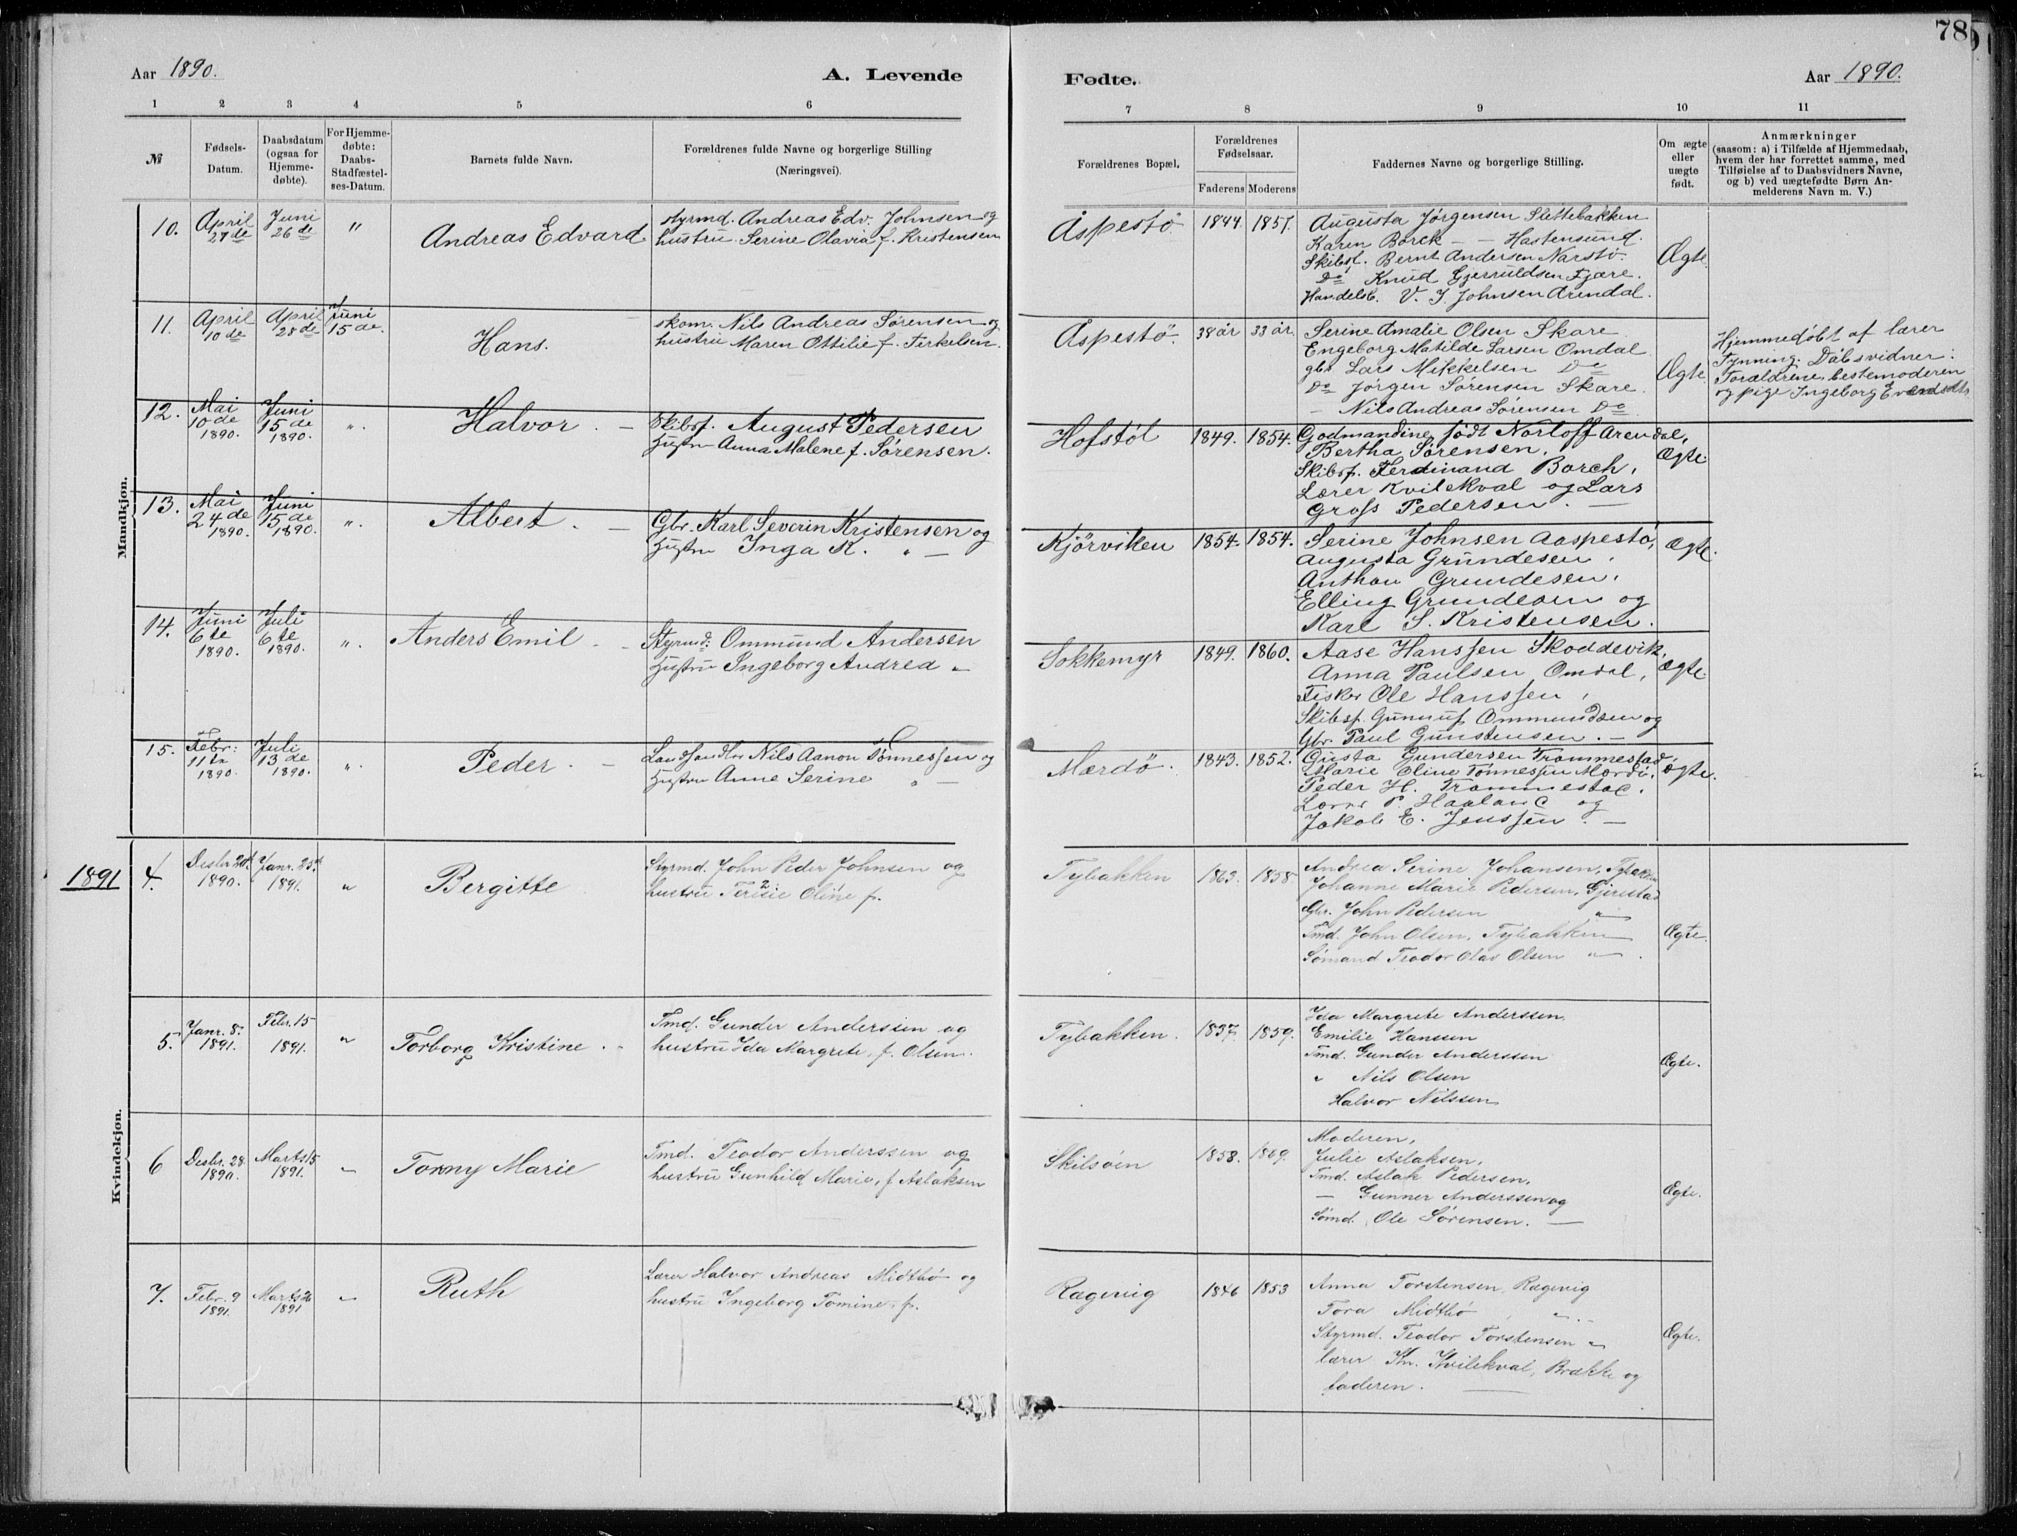 78
Aar 1890.
A. Levende
Fødte.
Aar 1890.
1 2 3 4 5 6 7 8 9 10 11
№
Fødsels-Datum.
Daabsdatum (ogsaa for Hjemme-døbte).
For Hjemme-døbte: Daabs-Stadfæstel-ses-Datum.
Barnets fulde Navn.
Forældrenes fulde Navne og borgerlige Stilling
(Næringsvei).
Forældrenes Bopæl.
Forældrenes Fødselsaar.
Faderens Moderens
Faddernes Navne og borgerlige Stilling.
Om ægte eller uægte født.
Anmærkninger
(saasom: a) i Tilfælde af Hjemmedaab,
hvem der har forrettet samme, med
Tilføielse af to Daabsvidners Navne,
og b) ved uægtefødte Børn An-
melderens Navn m. V.)
Mandkjøn.
10. April 27de Juni 26de " Andreas Edvard
styrmd. Andreas Edv. Johnsen og
hustru Serine Olavia f. Kristensen
Aspestø 1844 1857.
Augusta Jørgensen Slettebakken
Karen Borck — — Hastensund.
Skibsf. Bernt Andersen Narstø.
Do Knud Gjeruldsen Fjære.
Handelsb. V. J. Johnsen Arendal.
Ægte.
11. April 10de April 28de Juni 15de. Hans.
skom. Nils Andreas Sørensen og
hustru Maren Ottilie f. Terkelsen.
Aspestö. 38 år 33 år.
Serine Amalie Olsen Skare
Engeborg Matilde Larsen Omdal
gbr Lars Mikkelsen Do
Do Jörgen Sörensen Skare.
— Nils Andreas Sørensen Do
Ægte.
Hjemmedøbt af lærer
Tynning. Dåbsvidner:
Forældrene, bestemoderen
og pige Ingeborg
12. Mai 10de 1890. Juni 15de 1890. ". Halvor. —
Skibsf. August Pedersen
Hustru Anna Malene f. Sørensen.
Hofstøl 1849. 1854.
Godmandine født Norloff Arendal,
Bertha Sørensen,
Skibsf. Ferdinand Borch,
Lærer Kvilekval og Lars
Gross Pedersen. —
Ægte.
13. Mai 24de 1890. Juni 15de 1890. ". Albert. —
Gbr. Karl Severin Kristensen og
Hustru Inga K. " —
Kjörviken 1854. 1854.
Serine Johnsen Aaspestö,
Augusta Grundesen,
Anthon Grundesen,
Elling Grundesen og
Karl S. Kristensen.
Ægte.
14. Juni 6te 1890. Juli 6te 1890. ". Anders Emil - -
Styrmd: Ommund Andersen
Hustru Ingeborg Andrea "
Sokkemyr 1849. 1860.
Aase Hanssen Skoddevik,
Anna Paulsen Omdal,
Fisker Ole Hanssen,
Skibsf. Gunnuf Ommundsen og
Gbr. Paul Gunstensen. —
Ægte.
15. Febr: 11te 1890. Juli 13de 1890. ". Peder. —
Landhandler Nils Aanon Tønnessen og
Hustru Anne Serine " —
Mærdö. 1843. 1852.
Gusta Gundersen Trommestad,
Marie Oline Tønnessen Mærdö,
Peder H. Trommestad.
Lærer P. Haaland og
Jakob E. Jenssen. —
Ægte.
1891
Kvindekjøn.
4. Desbr. 20d. 1890. Janr. 25d 1891. " Bergitte
Styrmd. John Peder Johnsen og
hustru Terisie Oline f.
Tybakken 1863. 1858.
Andrea Serine Johansen, Tybakken
Johanne Marie Pedersen, Gjerestad
Gbr. John Pedersen "
Tmd. John Olsen, Tybakken
Sømand Teodor Olav Olsen "
Ægte.
5. Janr. 8. 1891. Febr. 15 1891. " Torborg Kristine. "
Tmd. Gunder Anderssen og
hustru Ida Margrete, f. Olsen.
Tybakken. 1837. 1859.
Ida Margrete Anderssen.
Emilie Hanssen
Tmd. Gunder Anderssen
" Nils Olsen
Halvor Nilssen
Ægte.
6 Desbr. 28. 1890. Marts 15 1891. " Tonny Marie
Tmd. Teodor Anderssen og
hustru Gunhild Marie, f Aslaksen
Skilsöen 1858. 1869.
Moderen,
Julie Aslaksen,
Tmd. Aslak Pedersen,
— Gunner Anderssen og
Sømd. Ole Sørensen. —
Ægte.
7. Febr. 9 1891. Marts 26 1891 " Ruth
Lærer Halvor Andreas Midtbø og
hustru Ingeborg Tomine, f.
Rægevig 1846 1853
Anna Torstensen, Rægevig
Tora Midtbø "
Styrmd. Teodor Torstensen "
lærer Kn. Kvilekval, Brække og
faderen. —
Ægte.